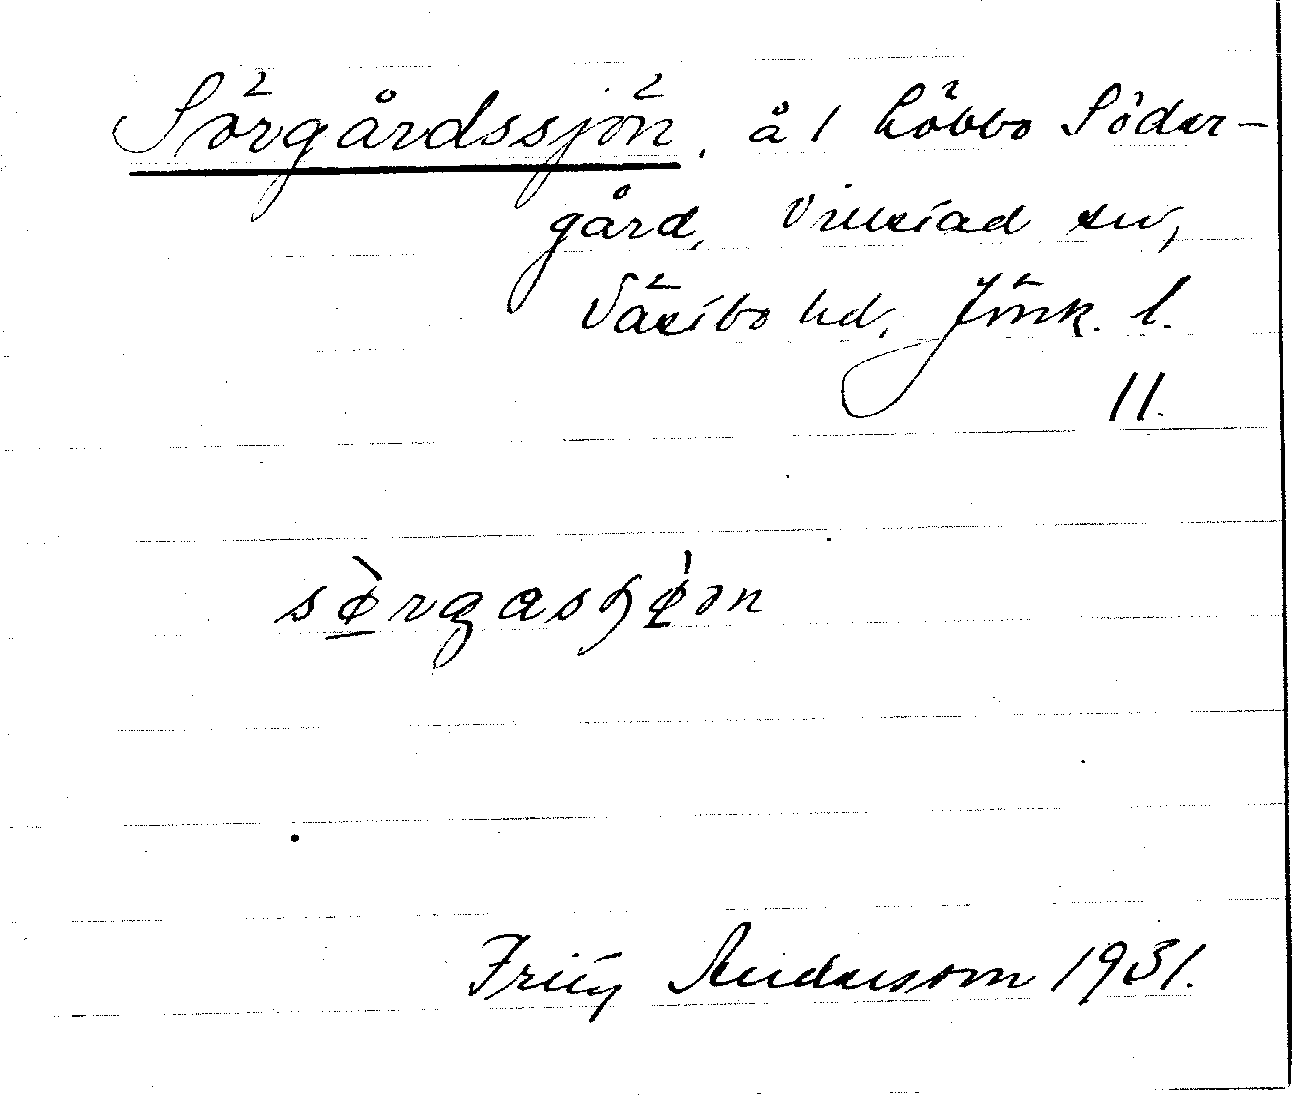 Sörgårdssjön, å 1 Löbbo Söder-
gård, Villstad sn,
Västbo hd, Jönk. l.
11.
sø̀rgasʃǿən
Fritz Andersson 1931.